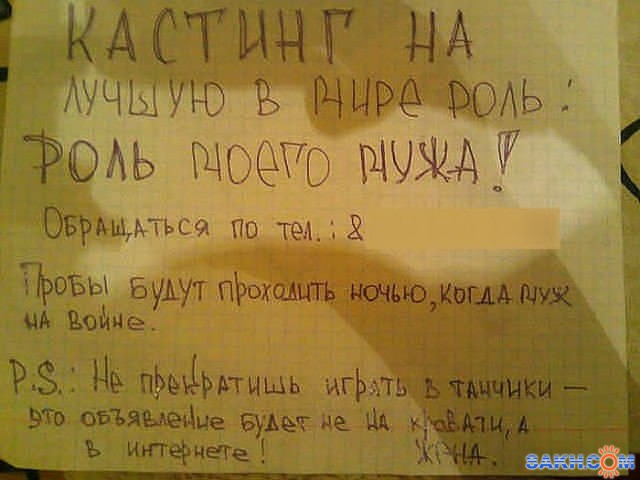 КАСТИНГ НА
ЛУЧШУЮ В МИРЕ РОЛЬ:
РОЛЬ МОЕГО МУЖА!
Обращаться по тел.: 8
Пробы будут проходить ночью, когда муж
на войне.
P.S.: Не прекратишь играть в танчики —
это объявление будет не на кровати, а
в интернете! ЖЕНА.
SAKH.COM